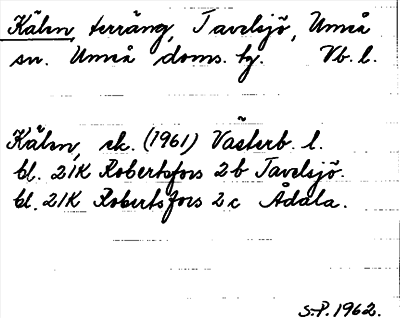 Kälen, terräng, Tavelsjö, Umeå
sn. Umeå doms. tg. Vb. l.
Kälen, ek. (1961) Västerb. l.
bl. 21K Robertsfors 2b Tavelsjö.
bl. 21K Robertsfors 2c Ådala.
S.P. 1962.